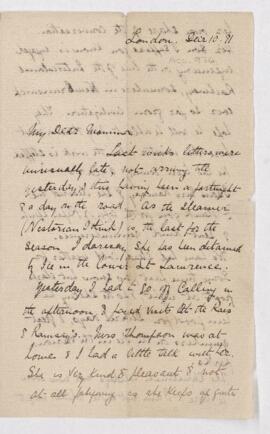 London, Dec 10. '91
My Dear Mamma
Last weeks letters were
unusually late, not arriving till
yesterday, & thus having been a fortnight
& a day on the road. As the steamer
(Nestorian I think) is the last for the
season I daresay she has been detained
by Ice in the lower St Lawrence.
Yesterday I had to go off Calling in
the afternoon, & paid visits at the
& Ramsay's. Thompson was at
home & I had a little talk with her.
She is very kind & pleasant & not
at all as she keeps up quite